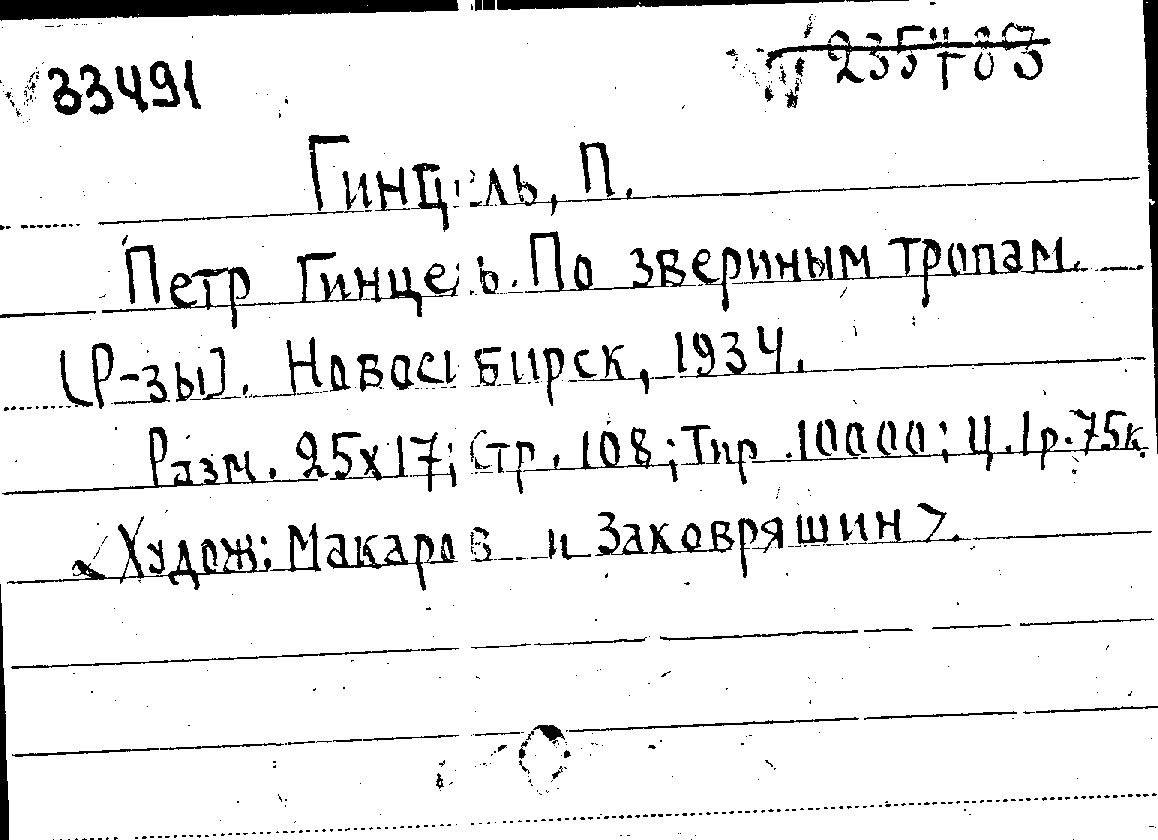 33491
235483
Гинцель, П.
Петр Гинцель. По звериным тропам.
[Р-зы]. Новосибирск, 1934.
Разм. 25х17; Стр. 108; Тир. 10000; Ц. 1р. 75к.
<Худож: Макаров и Заковряшин>.